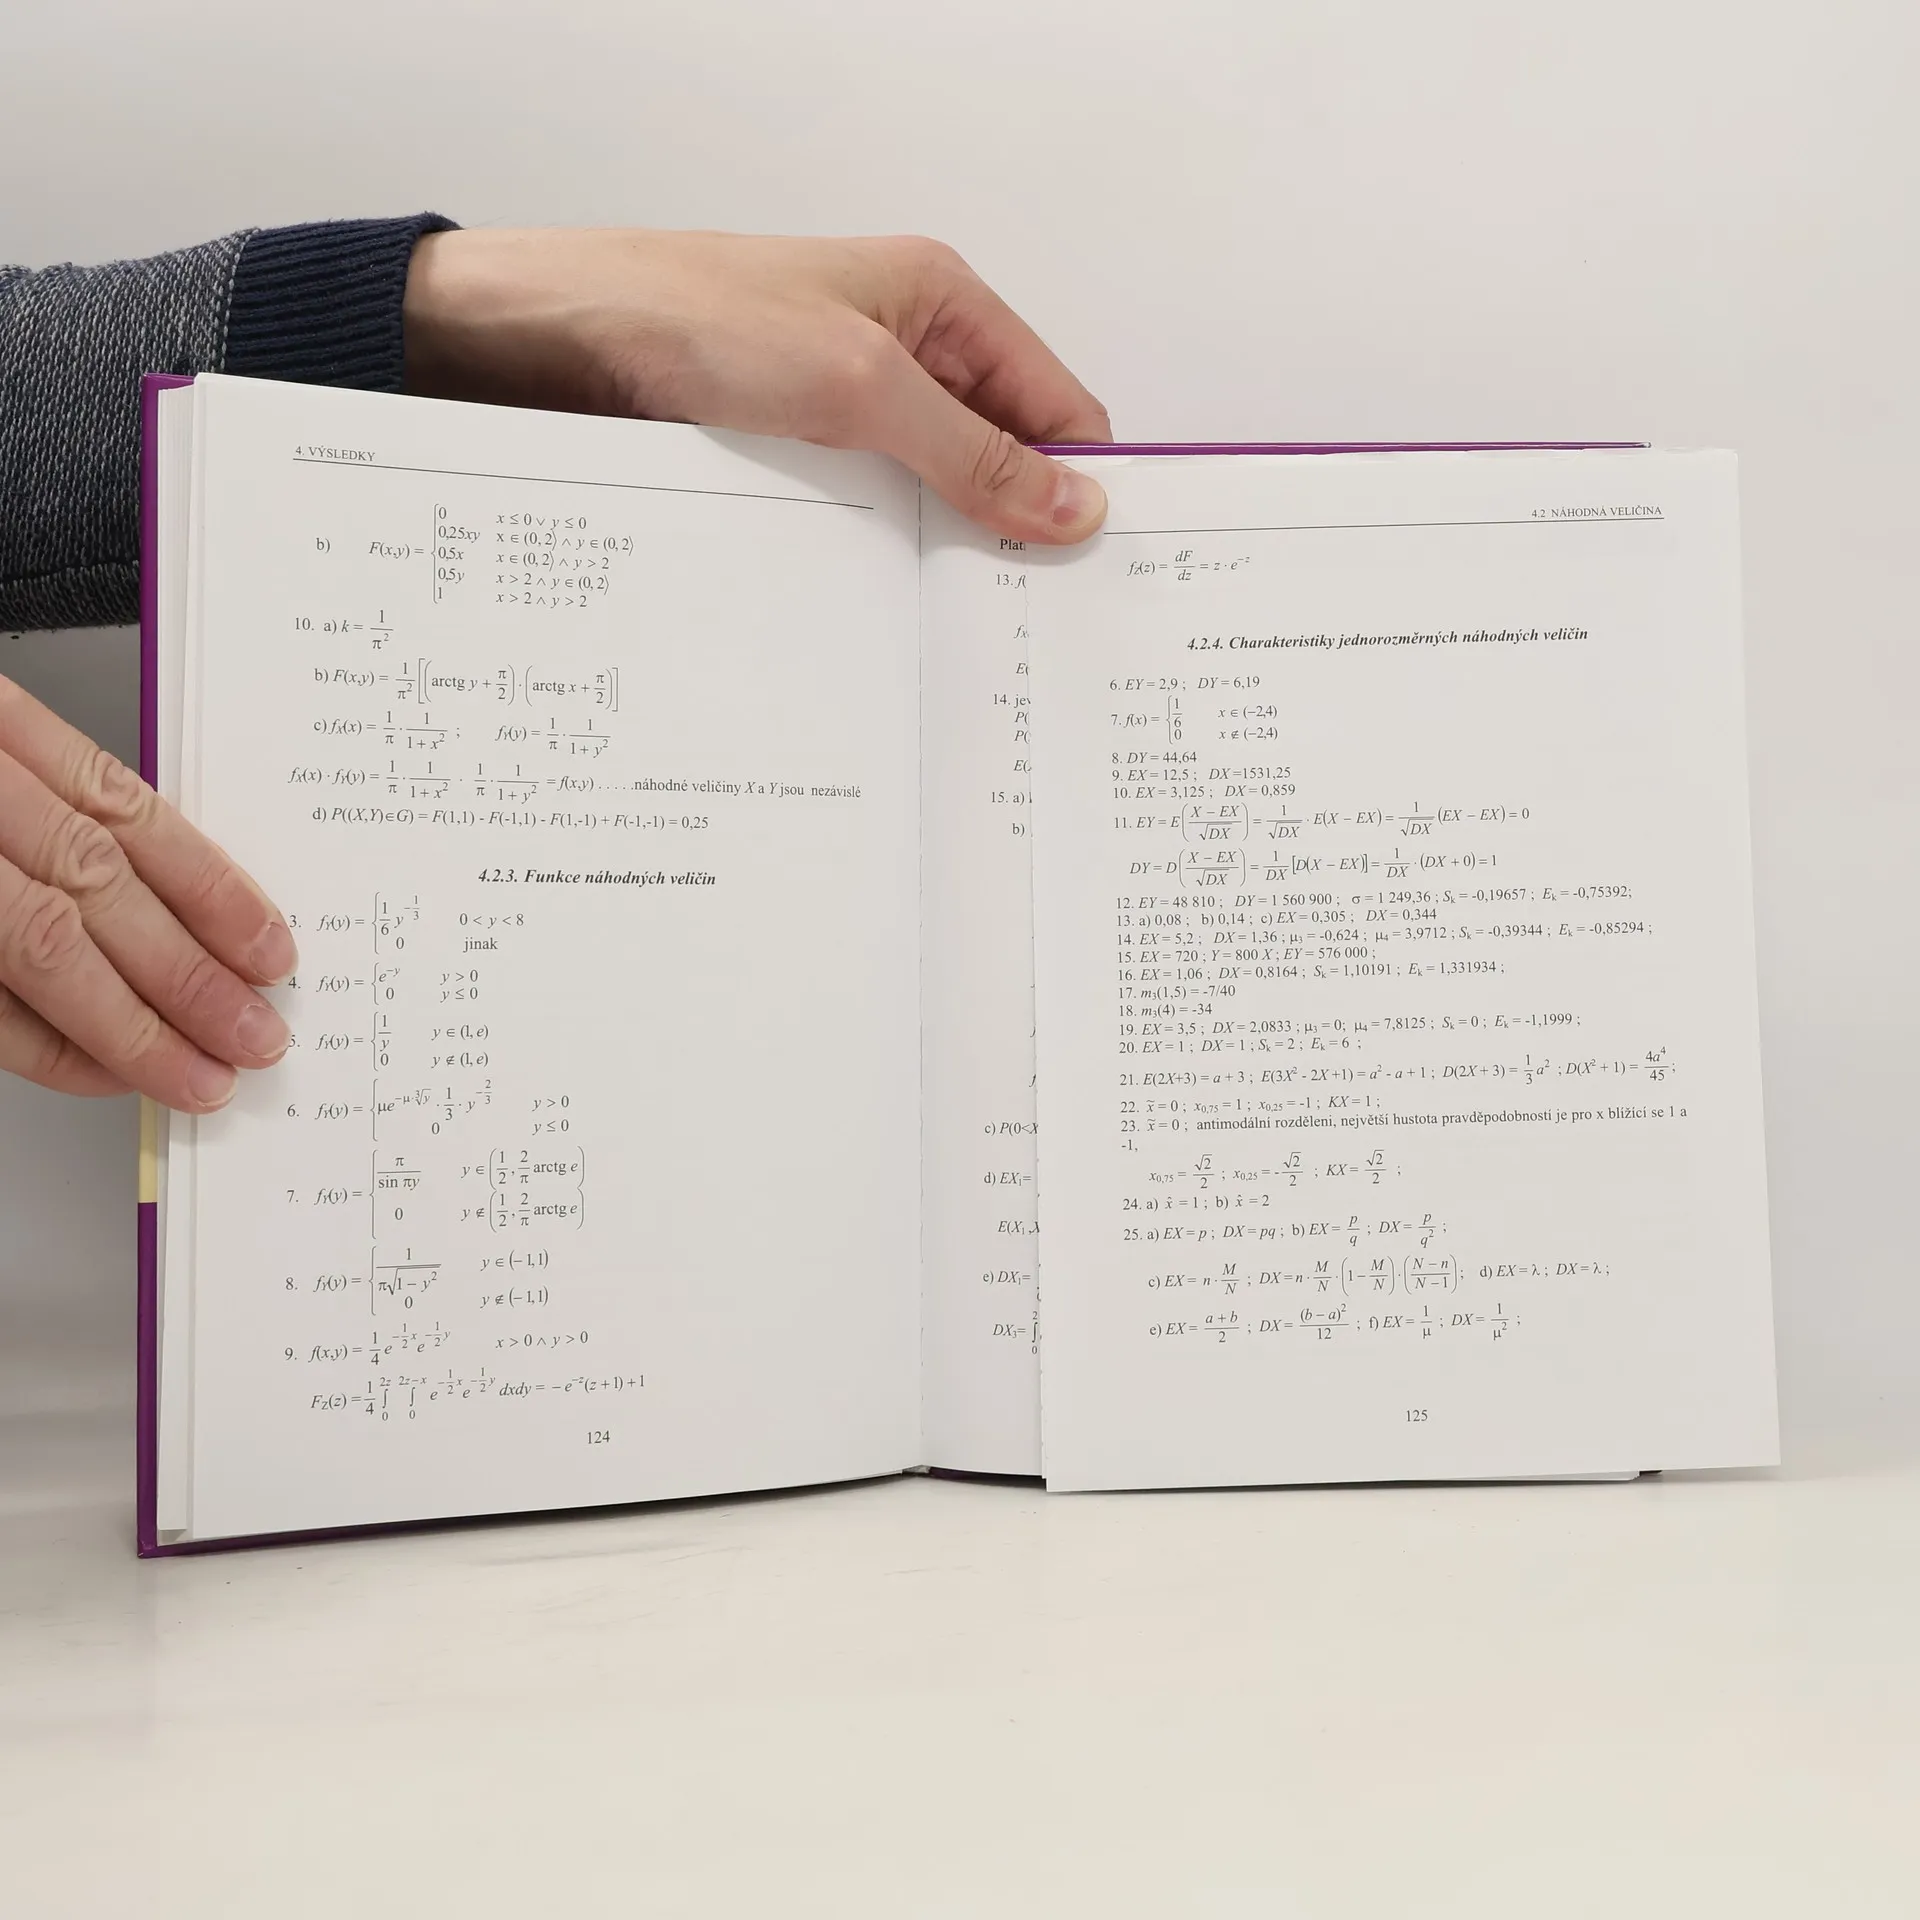 4. VÝSLEDKY
b) F(x,y) = {0 x ≤ 0 ∨ y ≤ 0
0,25xy x ∈ (0, 2⟩ ∧ y ∈ (0, 2⟩
0,5x x ∈ (0, 2⟩ ∧ y > 2
0,5y x > 2 ∧ y ∈ (0, 2⟩
1 x > 2 ∧ y > 2
10. a) k = 1/π²
b) F(x,y) = 1/π² [(arctg y + π/2) · (arctg x + π/2)]
c) f_X(x) = 1/π · 1/(1 + x²) ; f_Y(y) = 1/π · 1/(1 + y²)
f_X(x) · f_Y(y) = 1/π · 1/(1 + x²) · 1/π · 1/(1 + y²) = f(x,y) . . . . .náhodné veličiny X a Y jsou nezávislé
d) P((X,Y)∈G) = F(1,1) - F(-1,1) - F(1,-1) + F(-1,-1) = 0,25
4.2.3. Funkce náhodných veličin
3. f_Y(y) = {1/6 y^(-1/3) 0 < y < 8
0 jinak
4. f_Y(y) = {e^(-y) y > 0
0 y ≤ 0
5. f_Y(y) = {1/y y ∈ (1, e)
0 y ∉ (1, e)
6. f_Y(y) = {μe^(-μ·∛y) · 1/3 · y^(-2/3) y > 0
0 y ≤ 0
7. f_Y(y) = {π/sin πy y ∈ (1/2, 2/π arctg e)
0 y ∉ (1/2, 2/π arctg e)
8. f_Y(y) = {1/(π√(1 − y²)) y ∈ (−1, 1)
0 y ∉ (−1, 1)
9. f(x,y) = 1/4 e^(-1/2 x) e^(-1/2 y) x > 0 ∧ y > 0
F_Z(z) = 1/4 ∫₀^(2z) ∫₀^(2z−x) e^(-1/2 x) e^(-1/2 y) dxdy = − e^(-z)(z + 1) + 1
124
13. f(
E(
14. jev
P(
P(
15. a)
b)
c) P(0<X
d) EX₁=
E(X₁
e) DX₁=
DX₃=
4.2 NÁHODNÁ VELIČINA
f_Z(z) = dF/dz = z · e^(-z)
4.2.4. Charakteristiky jednorozměrných náhodných veličin
6. EY = 2,9 ; DY = 6,19
7. f(x) = {1/6 x ∈ (−2,4)
0 x ∉ (−2,4)
8. DY = 44,64
9. EX = 12,5 ; DX =1531,25
10. EX = 3,125 ; DX = 0,859
11. EY = E((X − EX)/√DX) = 1/√DX · E(X − EX) = 1/√DX (EX − EX) = 0
DY = D((X − EX)/√DX) = 1/DX [D(X − EX)] = 1/DX · (DX + 0) = 1
12. EY = 48 810 ; DY = 1 560 900 ; σ = 1 249,36 ; S_k = -0,19657 ; E_k = -0,75392;
13. a) 0,08 ; b) 0,14 ; c) EX = 0,305 ; DX = 0,344
14. EX = 5,2 ; DX = 1,36 ; μ₃ = -0,624 ; μ₄ = 3,9712 ; S_k = -0,39344 ; E_k = -0,85294 ;
15. EX = 720 ; Y = 800 X ; EY = 576 000 ;
16. EX = 1,06 ; DX = 0,8164 ; S_k = 1,10191 ; E_k = 1,331934 ;
17. m₃(1,5) = -7/40
18. m₃(4) = -34
19. EX = 3,5 ; DX = 2,0833 ; μ₃ = 0; μ₄ = 7,8125 ; S_k = 0 ; E_k = -1,1999 ;
20. EX = 1 ; DX = 1 ; S_k = 2 ; E_k = 6 ;
21. E(2X+3) = a + 3 ; E(3X² - 2X +1) = a² - a + 1 ; D(2X + 3) = 1/3 a² ; D(X² + 1) = 4a⁴/45 ;
22. x̃ = 0 ; x₀,₇₅ = 1 ; x₀,₂₅ = -1 ; KX = 1 ;
23. x̃ = 0 ; antimodální rozdělení, největší hustota pravděpodobnosti je pro x blížící se 1 a
-1,
x₀,₇₅ = √2/2 ; x₀,₂₅ = - √2/2 ; KX = √2/2 ;
24. a) x̂ = 1 ; b) x̂ = 2
25. a) EX = p ; DX = pq ; b) EX = p/q ; DX = p/q² ;
c) EX = n · M/N ; DX = n · M/N · (1 − M/N) · ((N − n)/(N − 1)) ; d) EX = λ ; DX = λ ;
e) EX = (a + b)/2 ; DX = (b − a)²/12 ; f) EX = 1/μ ; DX = 1/μ² ;
125